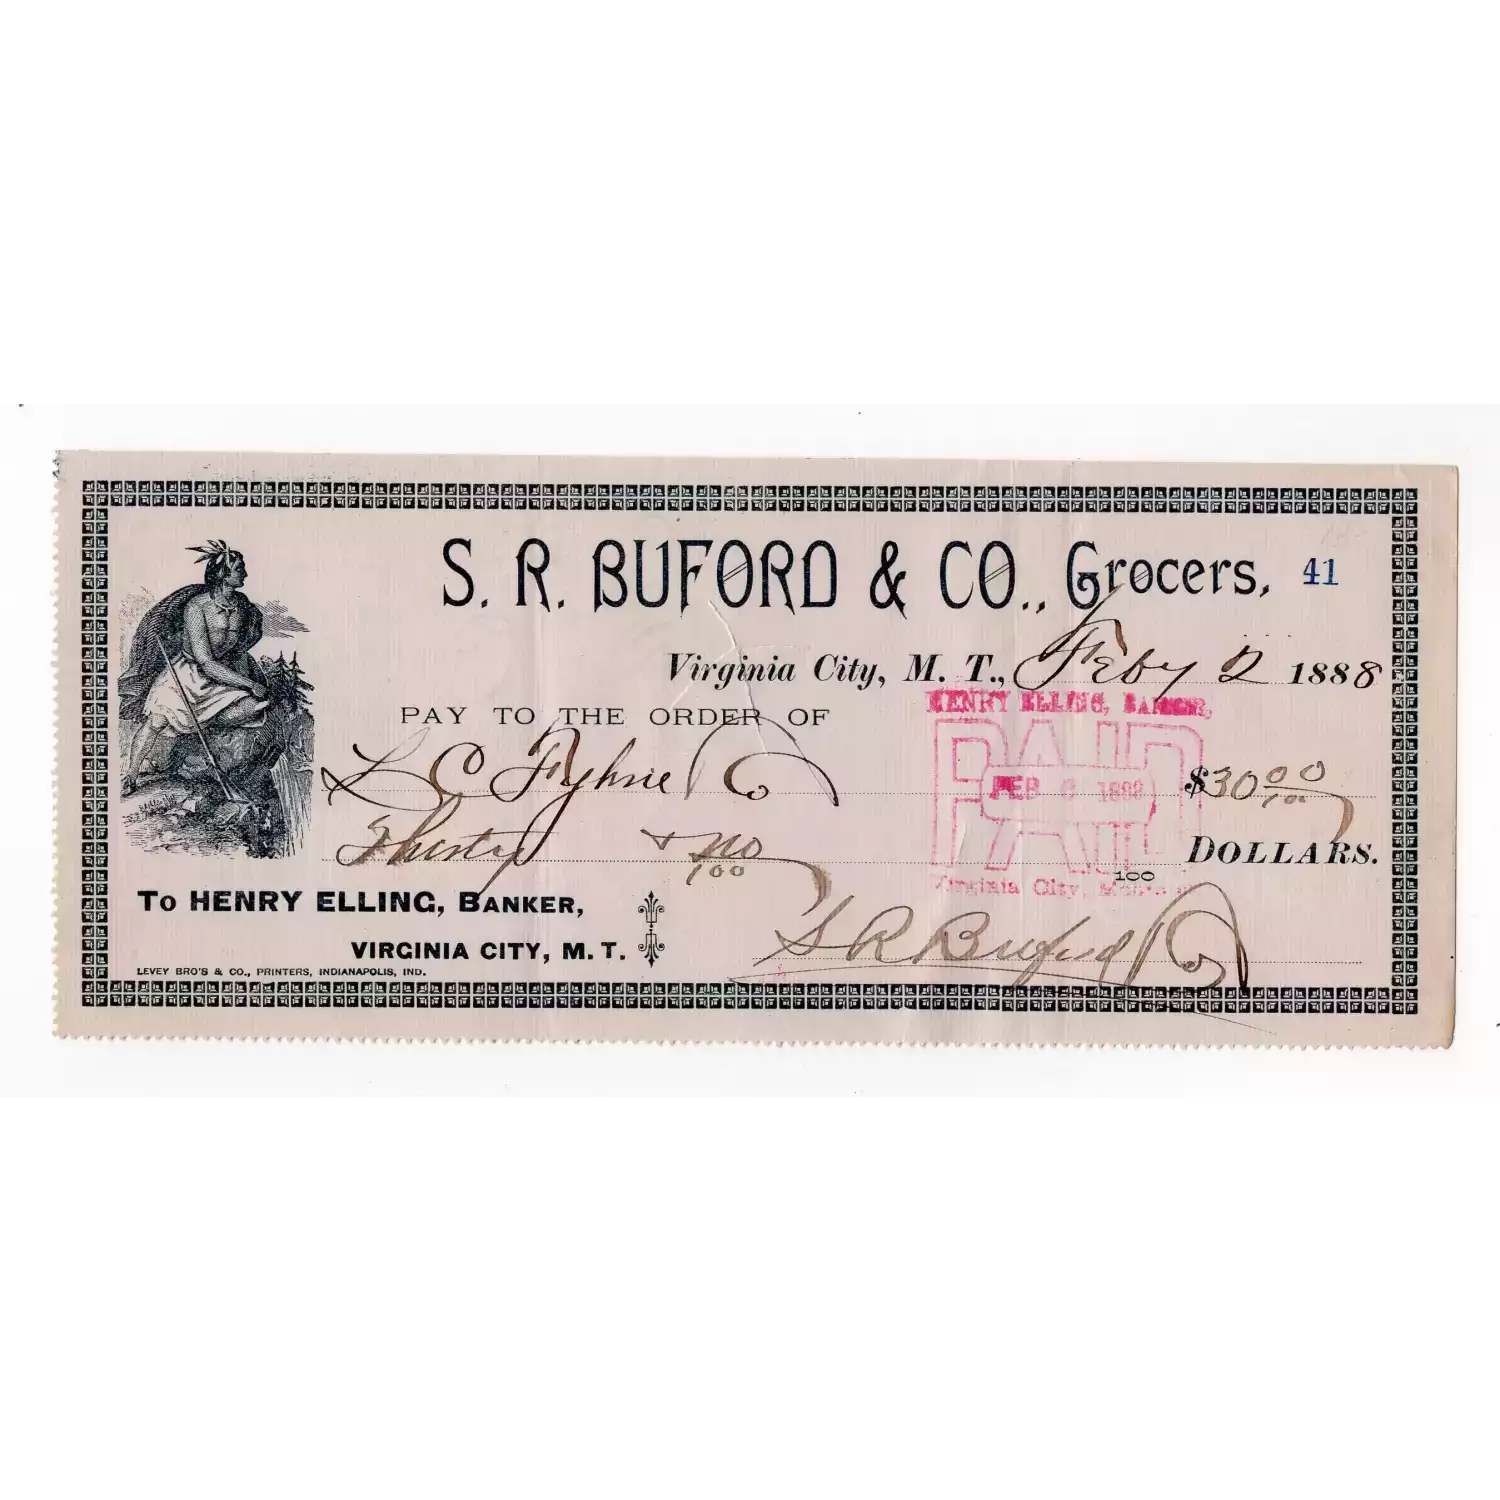 S. R. BUFORD & CO., Grocers, 41
Virginia City, M. T., Feby 2 1888
PAY TO THE ORDER OF
HENRY ELLING, BANKER,
PAID
L C Fyhrie & Co
FEB 6 1888
$30 00/100
Thirty & no/100
DOLLARS.
100
Virginia City, Montana
To HENRY ELLING, BANKER,
VIRGINIA CITY, M. T.
S R Buford & Co
LEVEY BRO'S & CO., PRINTERS, INDIANAPOLIS, IND.